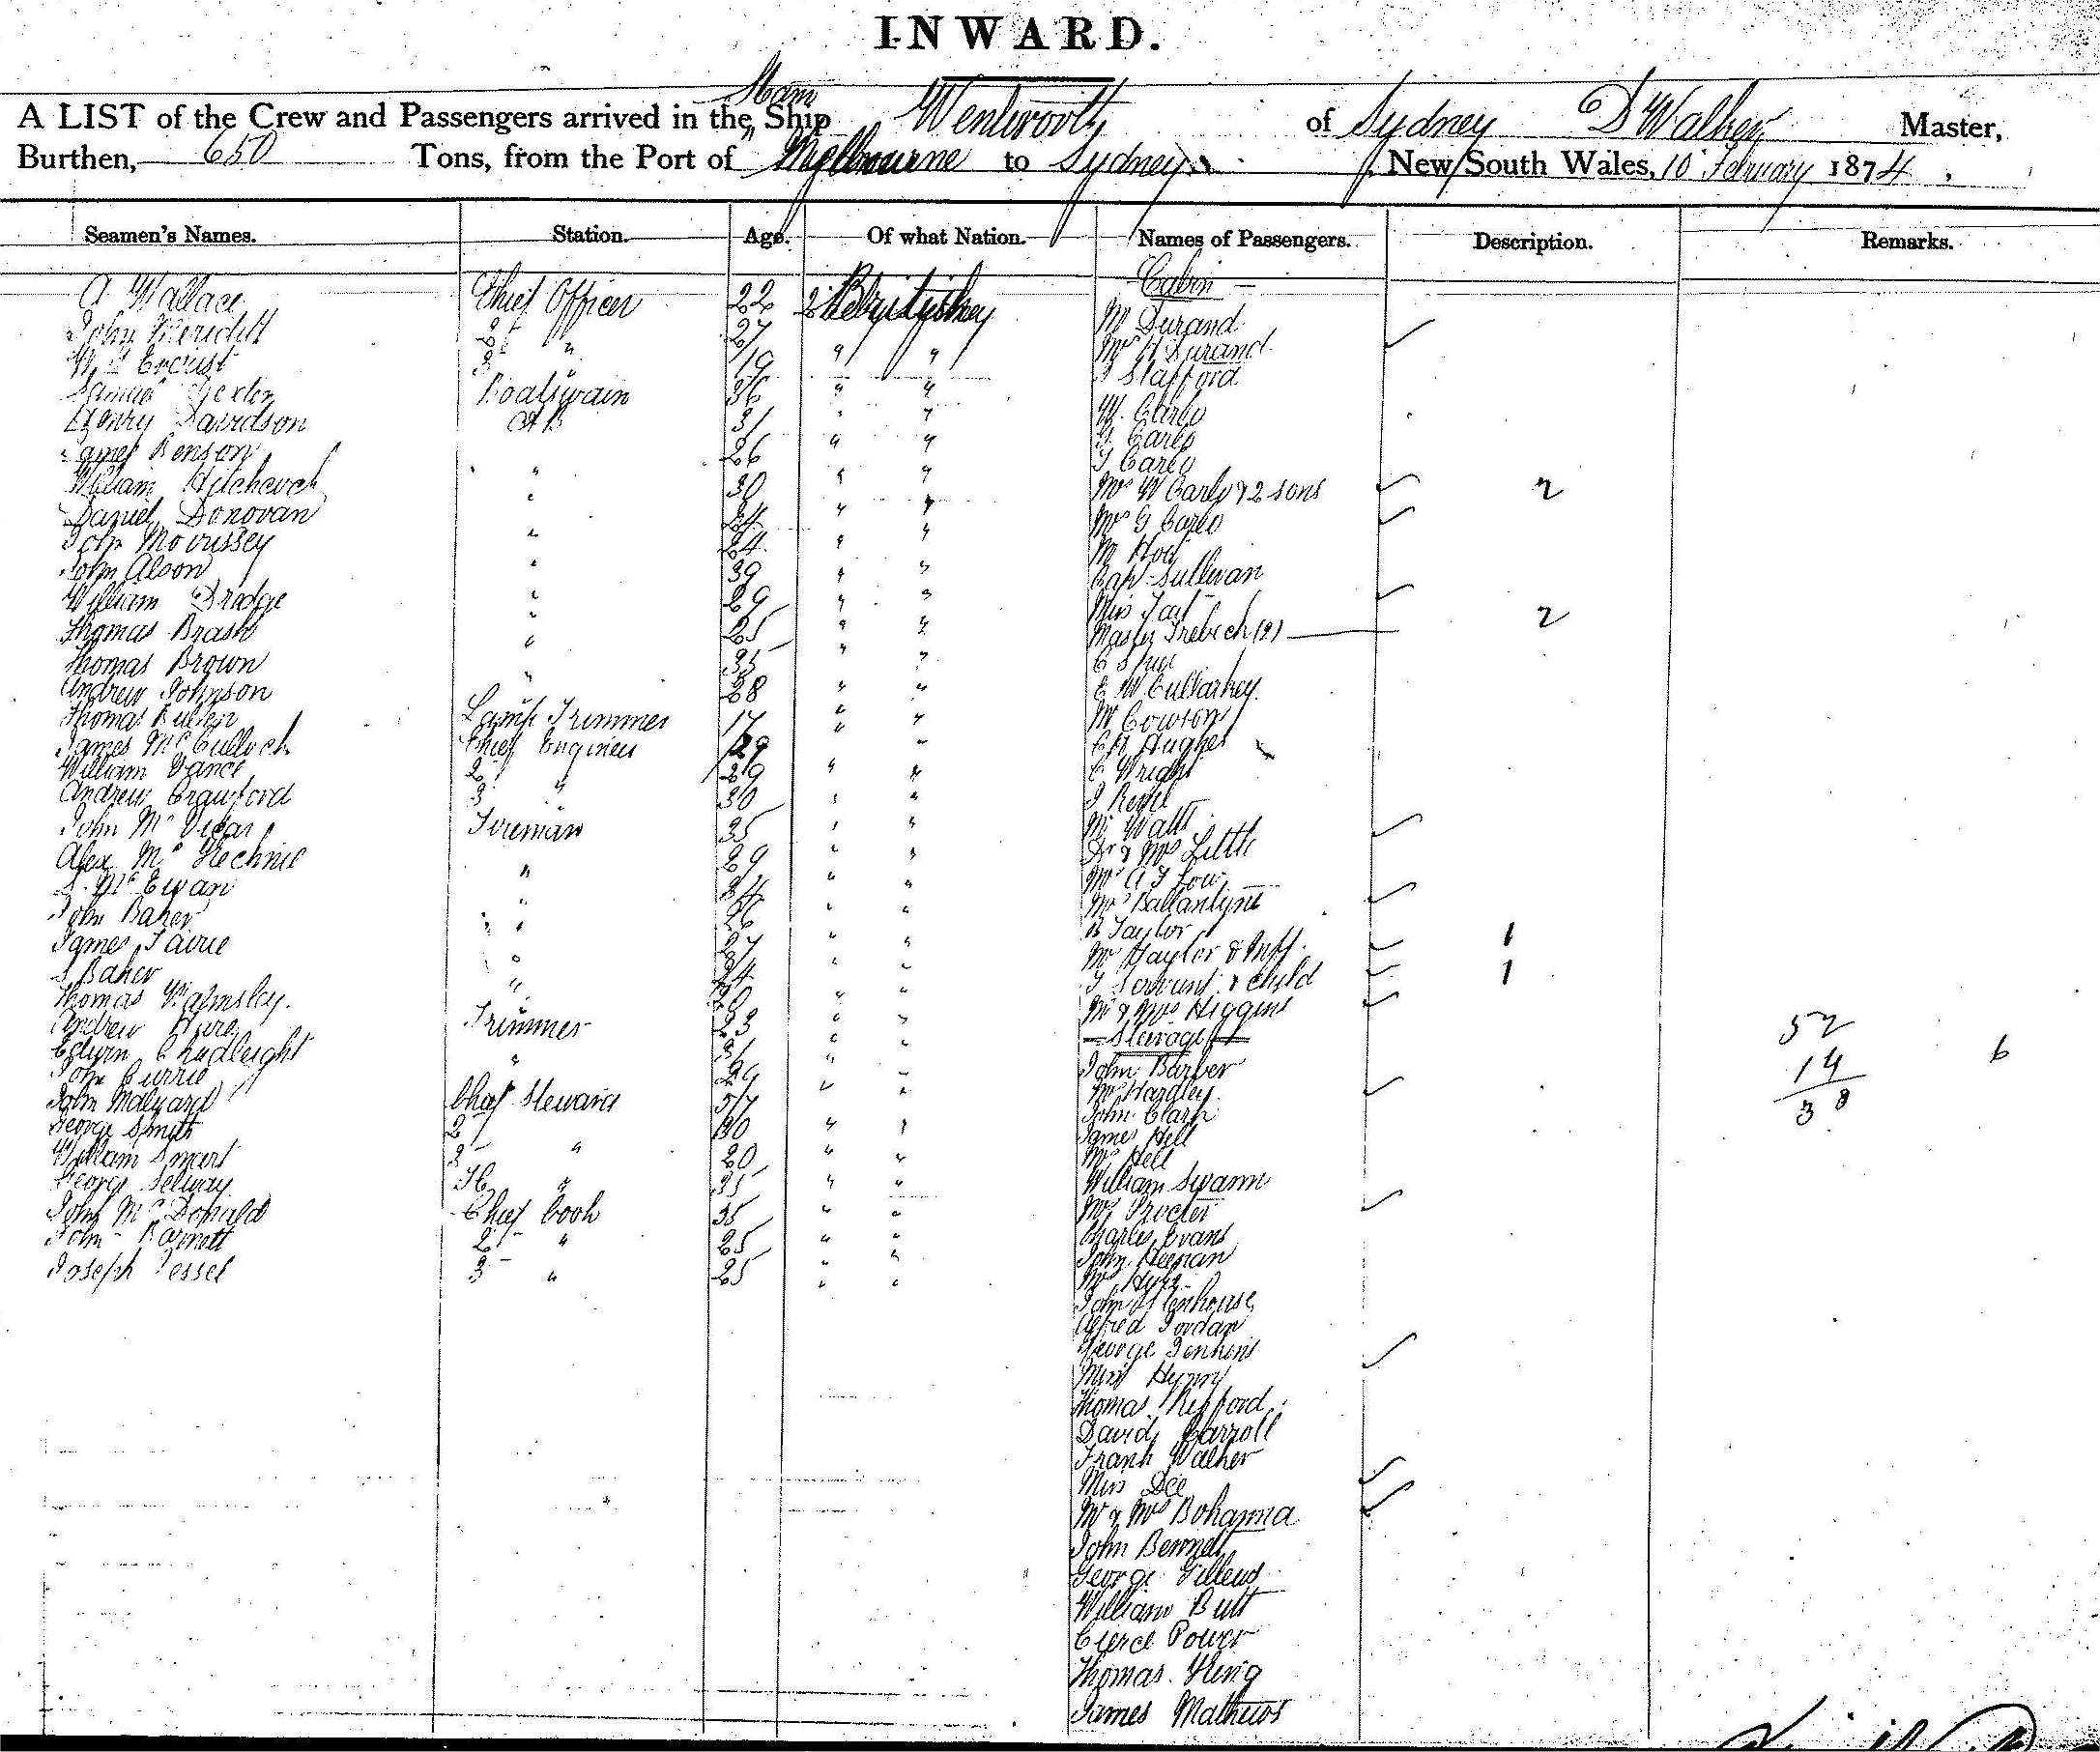 INWARD.
A LIST of the Crew and Passengers arrived in the Steam Ship Wentworth of Sydney D Walker Master,
Burthen, 650 Tons, from the Port of Melbourne to Sydney, New South Wales, 10 February 1874,
Seamen's Names. Station. Age. Of what Nation. Names of Passengers. Description. Remarks.
Cabin
A Wallace Chief Officer 22 British
John Meridith 2 " 27 " "
3 " 19 " "
Boatswain 36 " "
Henry Davidson AB 31 " "
James Benson " 26 " "
William Hitchcock " 30 " "
Daniel Donovan " " "
John Morrissey " 24 " "
John Alson " 39 " "
William Bridge " 29 " "
Thomas Brash " 25 " "
Thomas Brown " 35 " "
Andrew Johnson " 28 " "
Thomas Lamp Trimmer 17 " "
James McCulloch Chief Engineer 29 " "
William Vance 2 " 29 " "
Andrew Crawford 3 " 30 " "
John McVicar Fireman 35 " "
Alex McKechnie " 29 " "
McEwan " 34 " "
John Baker " 26 " "
James Fairie " 27 " "
Baker " 24 " "
Thomas Walmsley " 20 " "
Andrew Hare Trimmer 23 " "
Edwin Chudleight " 31 " "
John Currie " "
John Malyard Chief Steward 57 " "
George Smith 2 " "
William Smart 3 " 20 " "
George Selway " 35 " "
John McDonald Chief Cook 35 " "
John Barnett 2 " 25 " "
Joseph Vessel 3 " 25 " "
Mr Durand
Mrs H Durand
J Stafford
W. Carlo
G. Carlo
J Carlo
Mrs W Carlo & 2 sons 2
Mrs G Carlo
Mr
Capt Sullivan
Miss Tait
Master Trebeck (2) 2
C
E W Cullarkey
Mr Cowson
Hughes
C Wright
J
Mr Watt
Dr & Mrs Little
Mr A J Low
Mrs Ballantyne
R Taylor
Mrs Taylor & Inft. 1
Servant & child 1
Mr & Mrs Higgins
Steerage
John Barber
Mrs Hardley
John Clark
James Hell
Mr Hell
William Swann
Mrs Procter
Charles Evans
John Heenan
Mr
John Stenhouse
Alfred Jordan
George Jenkins
Miss Hynny
Thomas
David Carroll
Frank Walker
Miss Dee
Mr & Mrs Bohanna
John Bennett
George Gillend
William Butt
Pierce Power
Thomas King
James Mathews
52
14
38
6